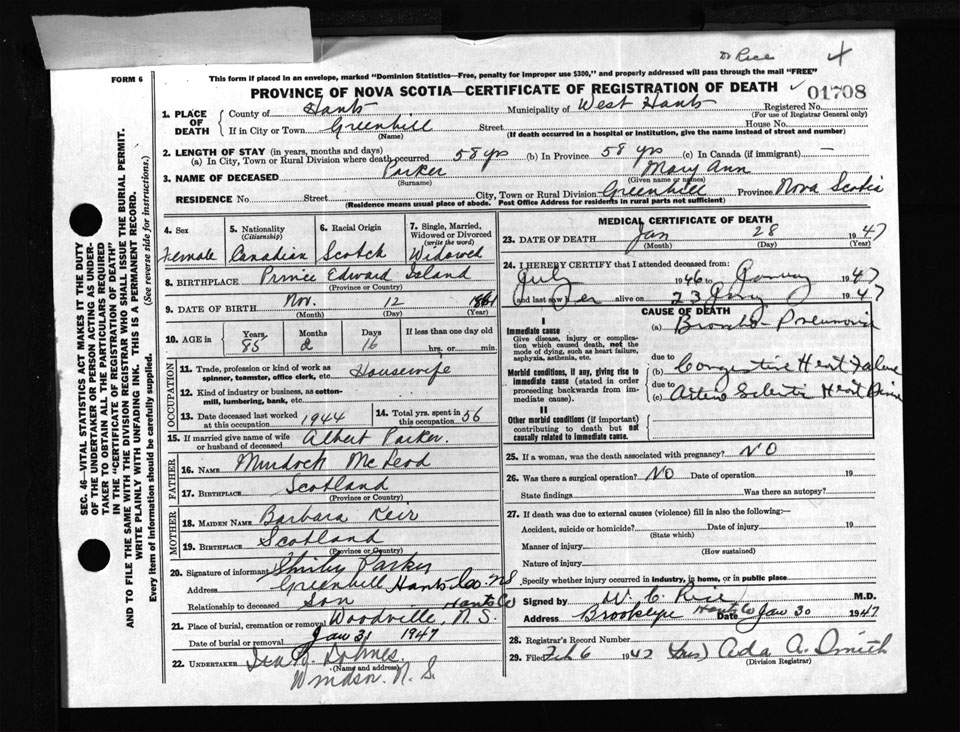 Dr Rice
FORM 6
This form if placed in an envelope, marked "Dominion Statistics—Free, penalty for improper use $300," and properly addressed will pass through the mail "FREE"
PROVINCE OF NOVA SCOTIA—CERTIFICATE OF REGISTRATION OF DEATH
01708
1. PLACE OF DEATH
County of Hants Municipality of West Hants Registered No.
(For use of Registrar General only)
If in City or Town Greenhill Street House No.
(Name) (If death occurred in a hospital or institution, give the name instead of street and number)
2. LENGTH OF STAY (in years, months and days)
(a) In City, Town or Rural Division where death occurred 58 yrs (b) In Province 58 yrs (c) In Canada (if immigrant) —
3. NAME OF DECEASED Parker Mary Ann
(Surname) (Given name or names)
RESIDENCE No. Street City, Town or Rural Division Greenhill Province Nova Scotia
(Residence means usual place of abode. Post Office Address for residents in rural parts not sufficient)
4. Sex 5. Nationality (Citizenship) 6. Racial Origin 7. Single, Married, Widowed or Divorced (write the word)
Female Canadian Scotch Widowed
8. BIRTHPLACE Prince Edward Island
(Province or Country)
9. DATE OF BIRTH Nov. 12 1861
(Month) (Day) (Year)
10. AGE in Years Months Days If less than one day old
85 2 16 hrs. or min.
OCCUPATION
11. Trade, profession or kind of work as spinner, teamster, office clerk, etc. Housewife
12. Kind of industry or business, as cotton-mill, lumbering, bank, etc.
13. Date deceased last worked at this occupation 1944 14. Total yrs. spent in 56
15. If married give name of wife or husband of deceased Albert Parker.
FATHER
16. NAME Murdock McLeod
17. BIRTHPLACE Scotland
(Province or Country)
MOTHER
18. MAIDEN NAME Barbara Keir
19. BIRTHPLACE Scotland
(Province or Country)
20. Signature of informant Shirley Parker
Address Greenhill Hants Co. NS
Relationship to deceased Son
Hants Co
21. Place of burial, cremation or removal Woodville, N.S.
Date of burial or removal Jan 31 1947
22. UNDERTAKER
(Name and address)
Windsor. N. S.
MEDICAL CERTIFICATE OF DEATH
23. DATE OF DEATH Jan 28 1947
(Month) (Day) (Year)
24. I HEREBY CERTIFY that I attended deceased from:
July 1946 to January 1947
and last saw her alive on 23 Jany 1947
CAUSE OF DEATH
I
Immediate cause
Give disease, injury or complication which caused death, not the mode of dying, such as heart failure, asphyxia, asthenia, etc.
(a) Broncho-Pneumonia
due to
Morbid conditions, if any, giving rise to immediate cause (stated in order proceeding backwards from immediate cause).
(b) Congestive Heart Failure
due to
(c)
II
Other morbid conditions (if important) contributing to death but not causally related to immediate cause.
25. If a woman, was the death associated with pregnancy? NO
26. Was there a surgical operation? NO Date of operation 19
State findings Was there an autopsy?
27. If death was due to external causes (violence) fill in also the following:—
Accident, suicide or homicide? Date of injury 19
(State which)
Manner of injury
(How sustained)
Nature of injury
Specify whether injury occurred in industry, in home, or in public place
Signed by W. C. Rice M.D.
Address Brooklyn Hants Co Date Jan 30 1947
28. Registrar's Record Number
29. Filed Feb 6 1947 (Mrs) Ada A. Smith
(Division Registrar)
SEC. 46—VITAL STATISTICS ACT MAKES IT THE DUTY
OF THE UNDERTAKER OR PERSON ACTING AS UNDER-
TAKER TO OBTAIN ALL THE PARTICULARS REQUIRED
IN THE "CERTIFICATE OF REGISTRATION OF DEATH"
AND TO FILE THE SAME WITH THE DIVISION REGISTRAR WHO SHALL ISSUE THE BURIAL PERMIT.
WRITE PLAINLY WITH UNFADING INK. THIS IS A PERMANENT RECORD.
Every item of information should be carefully supplied. (See reverse side for instructions.)